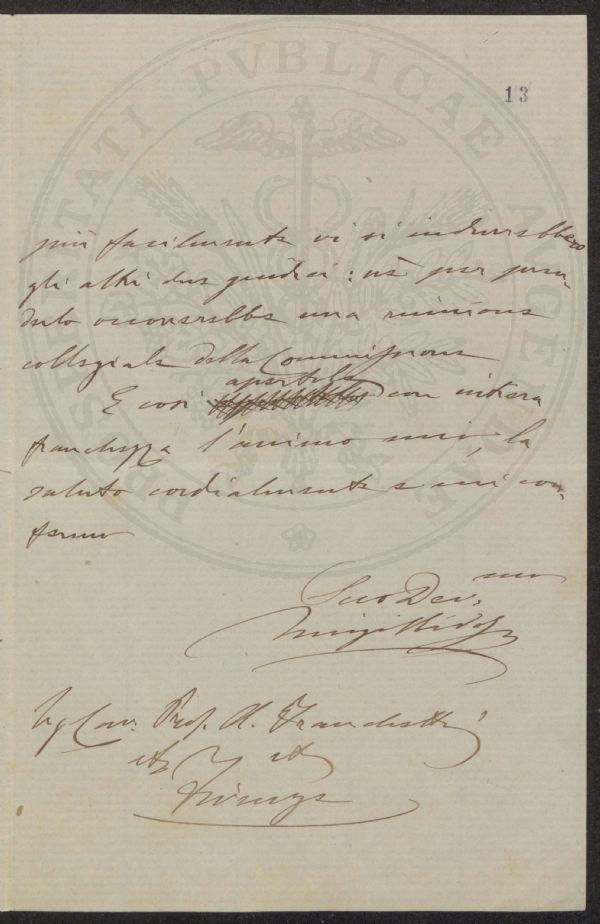 PROSPERITATI PVBLICAE AVGENDAE
13
più facilmente vi si indurrebbero
gli altri due giudici: nè per
occorrerebbe una riunione
collegiale della Commissione
E così apertole con intiera
franchezza l'animo mio, la
saluto cordialmente e mi con-
fermo
Suo Dev.mo
Luigi
Cav. Prof. A. Franchetti
Firenze